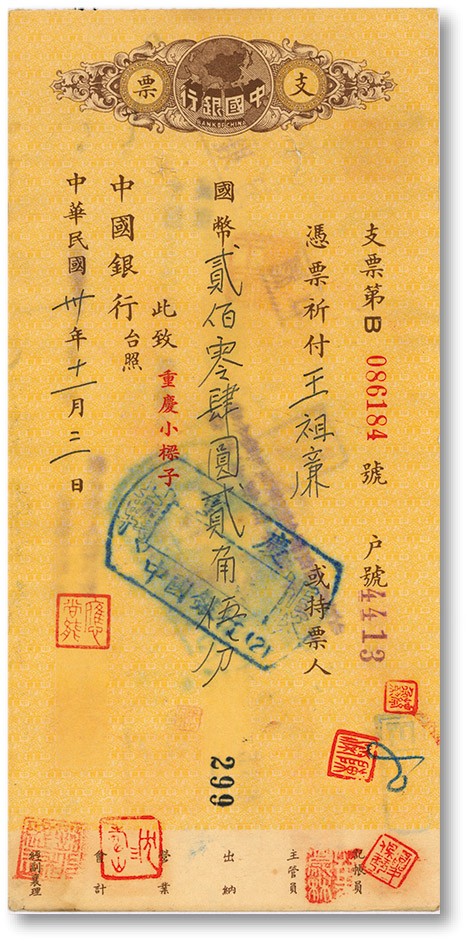 支 中國銀行 票
BANK OF CHINA
支票第B 086184 號 户號 4413
憑票祈付王祖廉 或持票人
國幣貳佰零肆圓貳角伍分
此致 重慶小樑子
中國銀行 台照
中華民國卅年十一月二日
應尚能
299
記帳員
主管員
出納
營業
會計
經副襄理